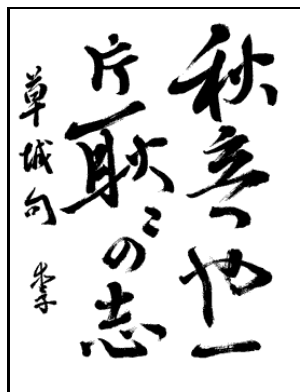 秋立つや一
片耿〻の志
草城句 李